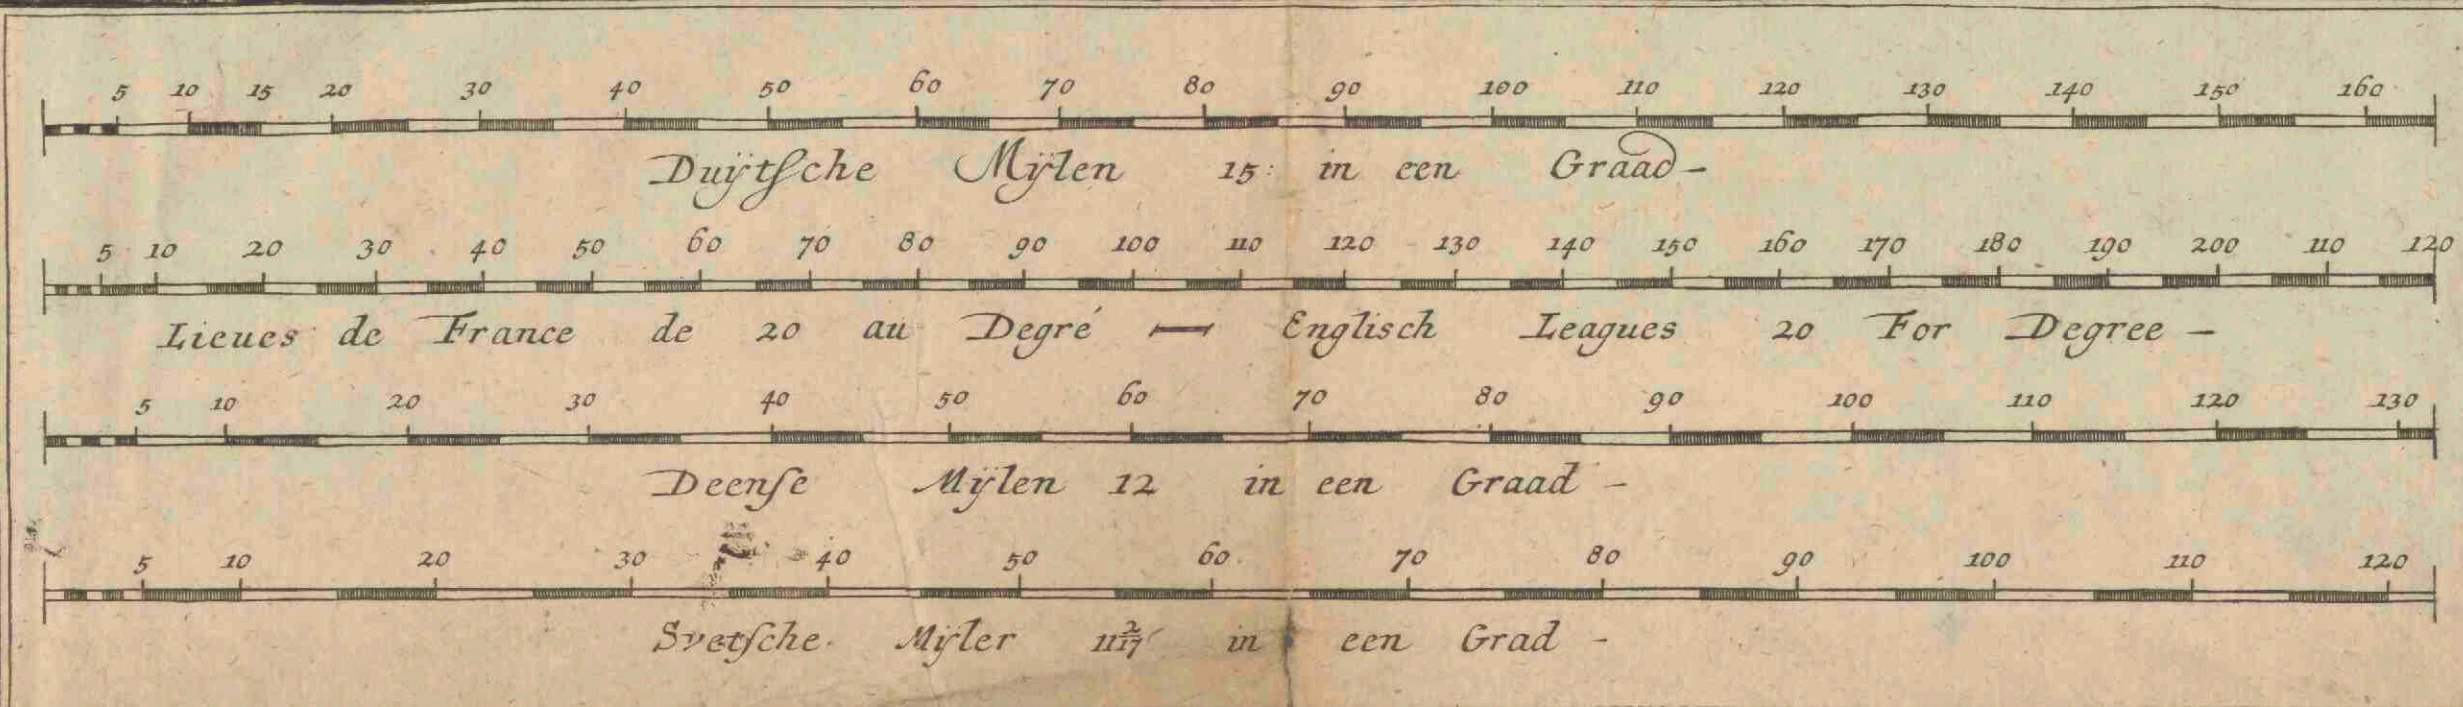 5 10 15 20 30 40 50 60 70 80 90 100 110 120 130 140 150 160
Duÿtſche Mÿlen 15: in een Graad-
5 10 20 30 40 50 60 70 80 90 100 110 120 130 140 150 160 170 180 190 200 110 120
Lieues de France de 20 au Degré — Englisch Leagues 20 For Degree -
5 10 20 30 40 50 60 70 80 90 100 110 120 130
Deenſe Mÿlen 12 in een Graad -
5 10 20 30 40 50 60 70 80 90 100 110 120
Svetſche Mÿler 11 2/17 in een Grad -